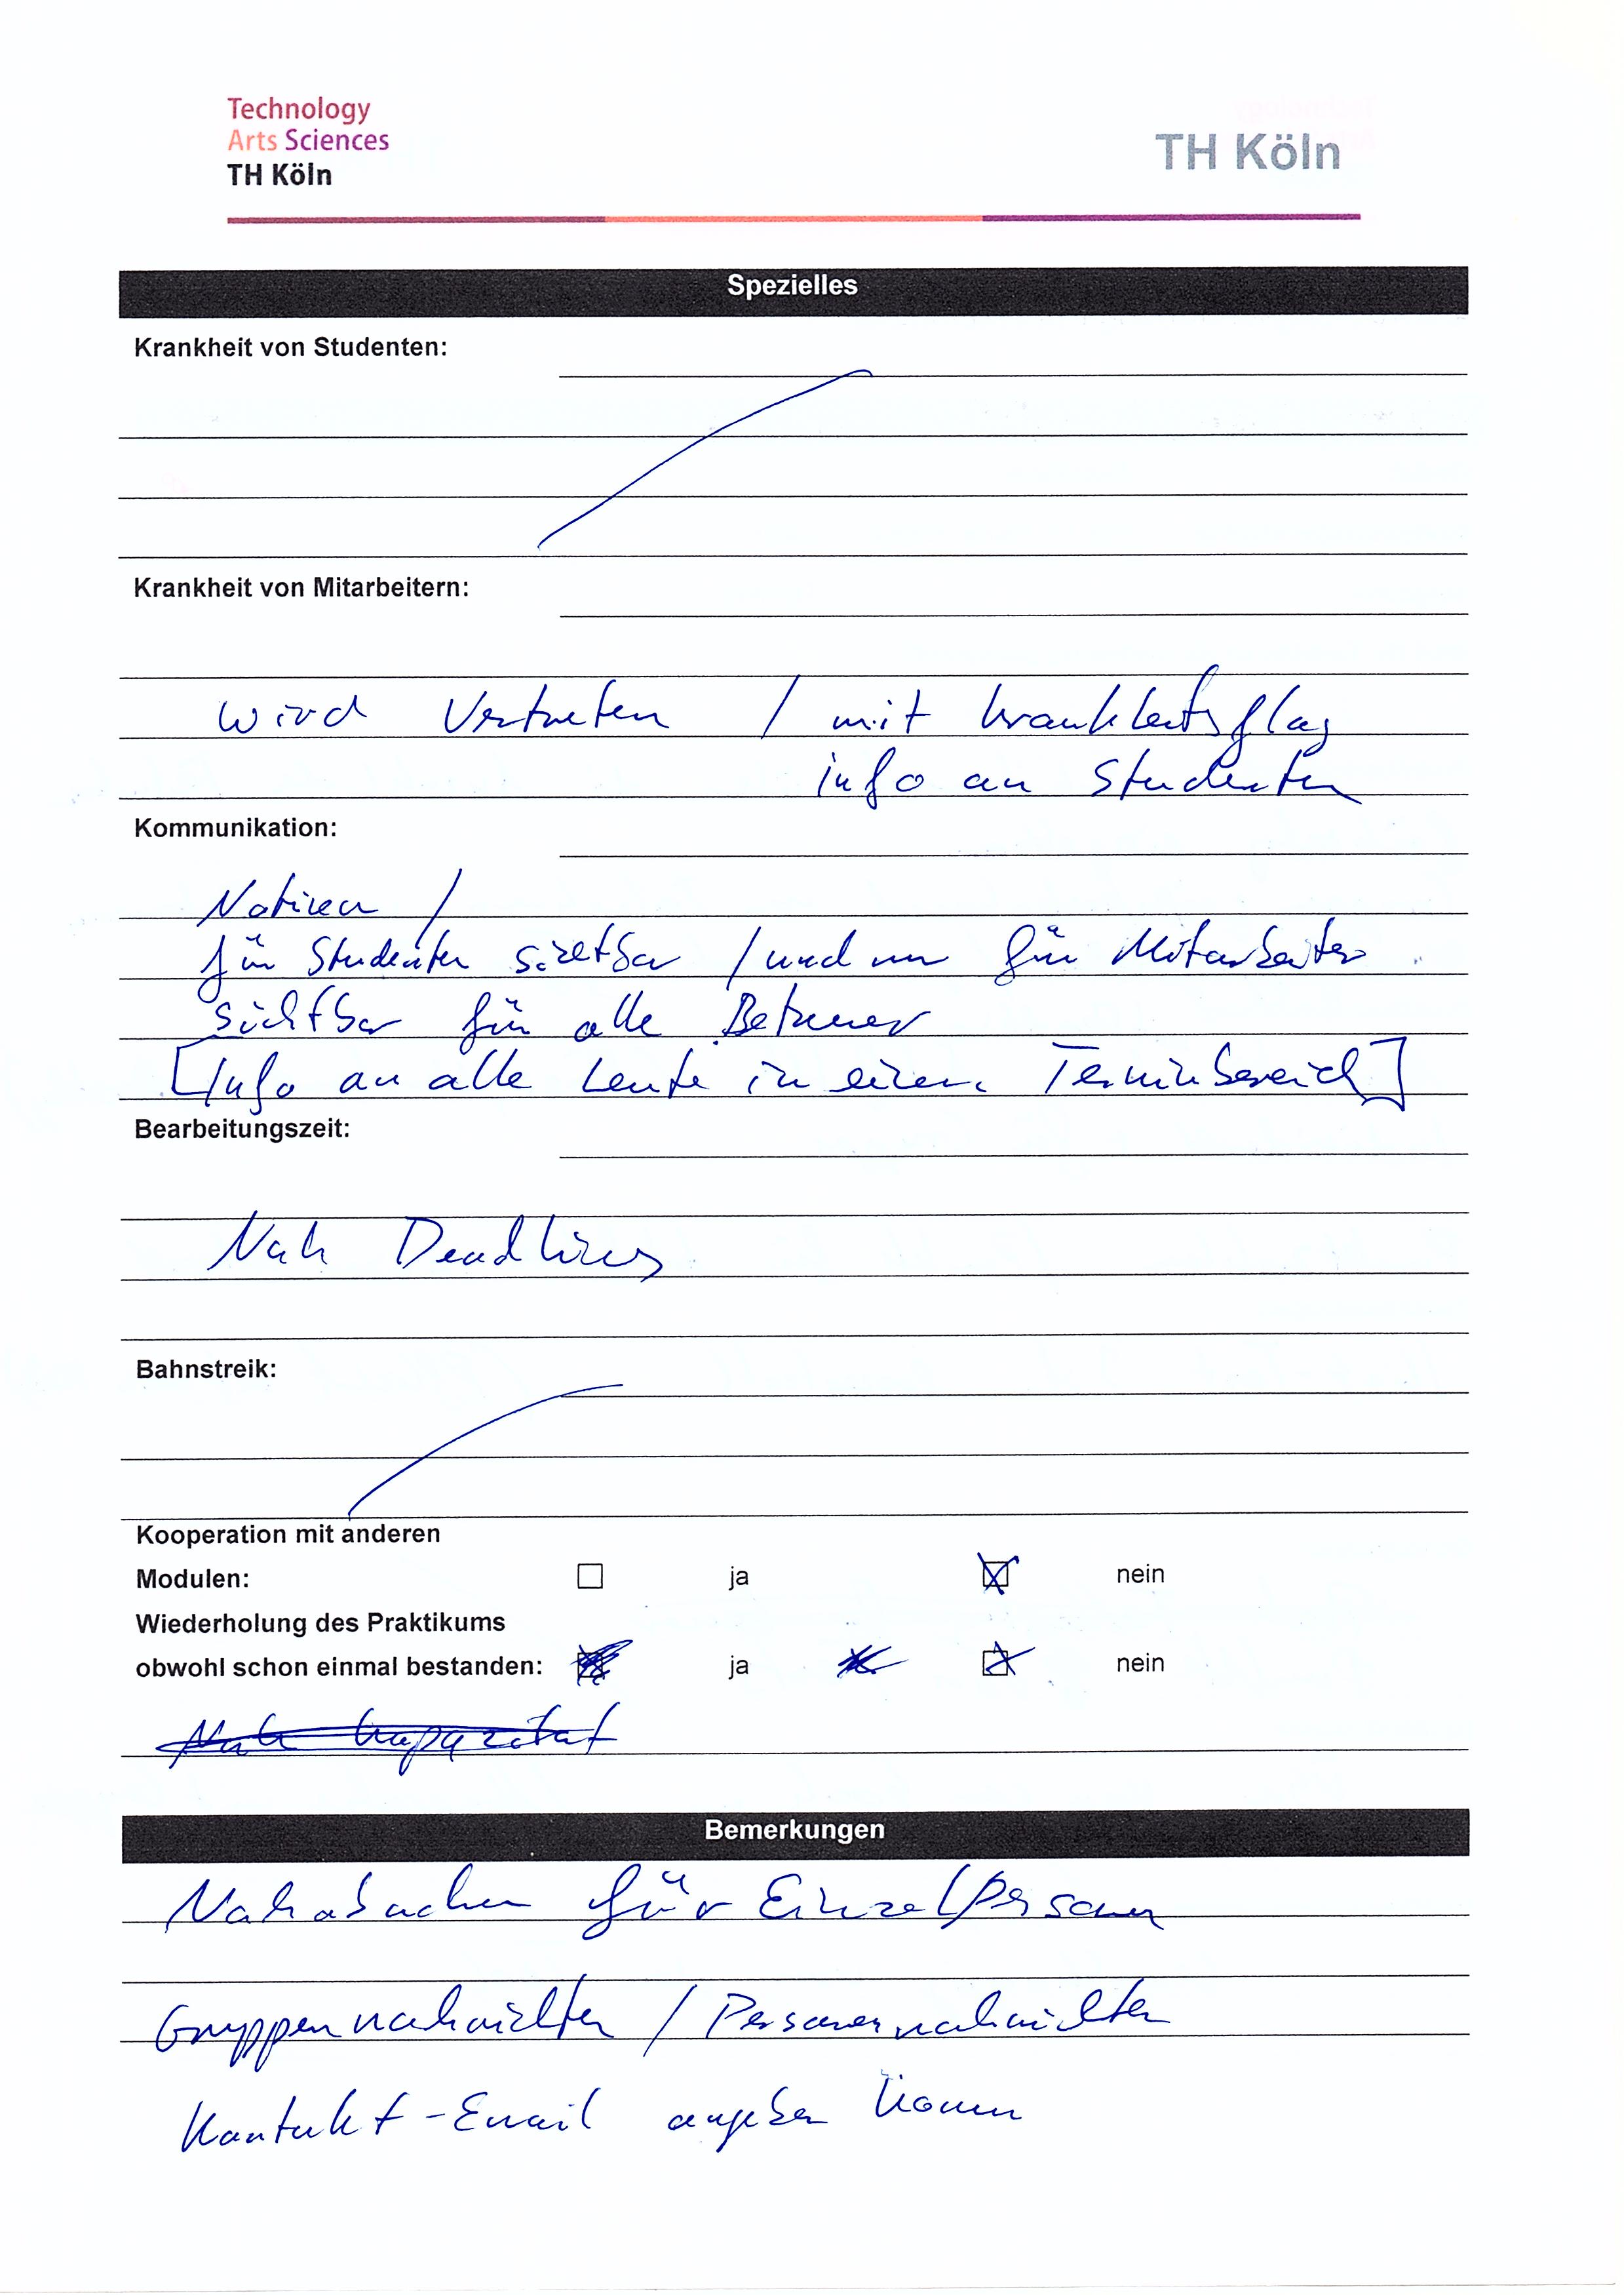 Technology
Arts Sciences
TH Köln
TH Köln
Spezielles
Krankheit von Studenten:
Krankheit von Mitarbeitern:
wird Vertreten / mit Krankheitsflag
info an Studenten
Kommunikation:
Notizen /
für Studenten sichtbar / und nur für Mitarbeiter
sichtbar für alle Betreuer
[Info an alle Leute in einem Terminbereich]
Bearbeitungszeit:
Nach Deadlines
Bahnstreik:
Kooperation mit anderen
Modulen: ja nein
Wiederholung des Praktikums
obwohl schon einmal bestanden: ja nein
Nach Kapazität
Bemerkungen
für Einzelpersonen
Gruppennachrichten / Personennachrichten
Kontakt-Email angeben können